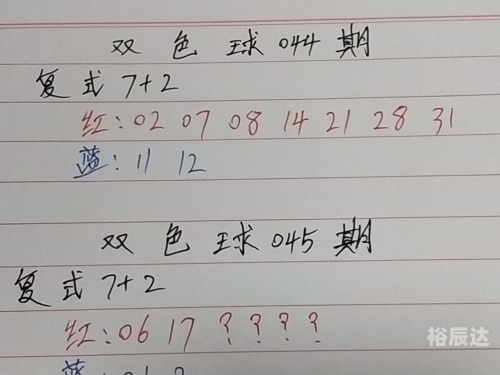 双色球044期
复式7+2
红:02 07 08 14 21 28 31
蓝:11 12
双色球045期
复式7+2
红:06 17 ? ? ? ?
裕辰达